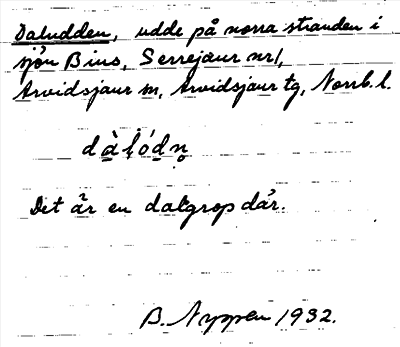 Daludden, udde på norra stranden i
sjön Bius, Serrejaur nr 1,
Arvidsjaur sn, Arvidsjaur tg, Norrb. l.
dàlódn̥
Det är en dalgrop där.
B. Nyppen 1932.